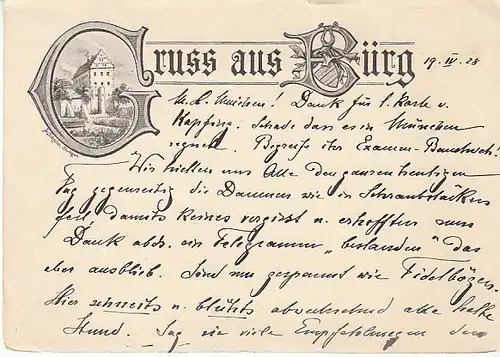 Gruss aus Bürg 19. IV. 28
M. L. Muichen! Dank für l. Karte v.
Kapfing. Schade dass es in München
regnet. Begreife Eer Examen-Bauchweh!
Wir hielten uns Alle den ganzen heutigen
Tag gegenseitig die Daumen wie in Schraubstöcken
fest, damits keines vergisst u. erhofften zum
Dank abds. ein Telegramm „bestanden" das
aber ausblieb. Sind nun gespannt wie Fidelbögen.
Hier schneits u. blühts abwechselnd alle halbe
Stund. Sag viele Empfehlungen den